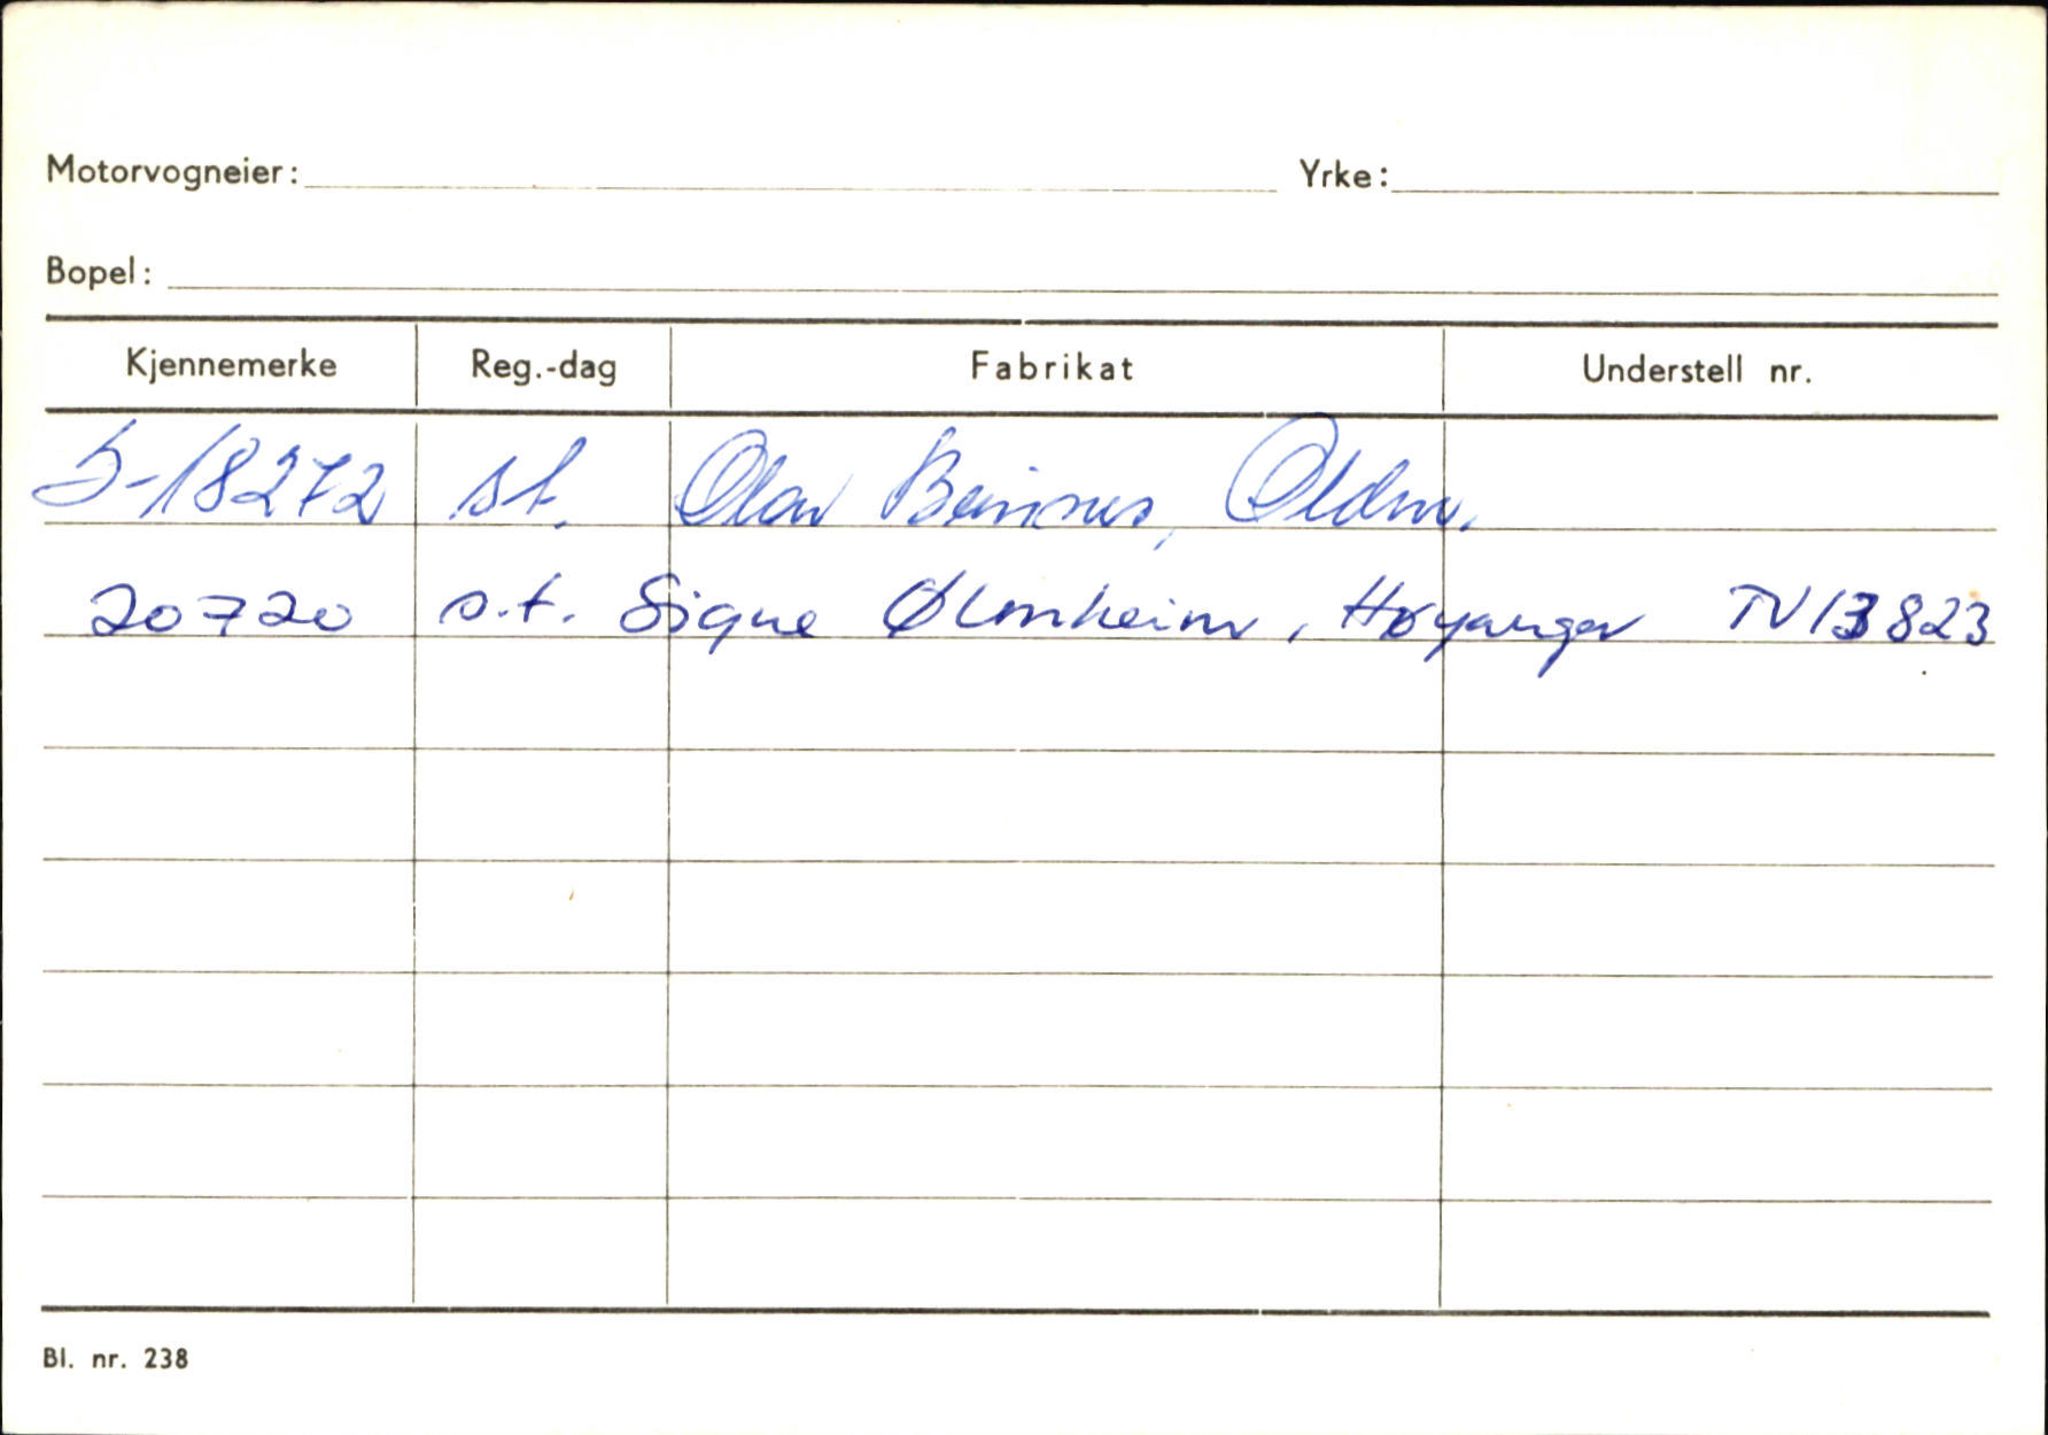 Motorvogneier: Yrke:
Bopel:
Kjennemerke Reg.-dag Fabrikat Understell nr.
S-18272 st. Olav Beinsnes, Olden.
20720 s.t. Signe Ølmheim, Høyanger TV13823
Bl. nr. 238